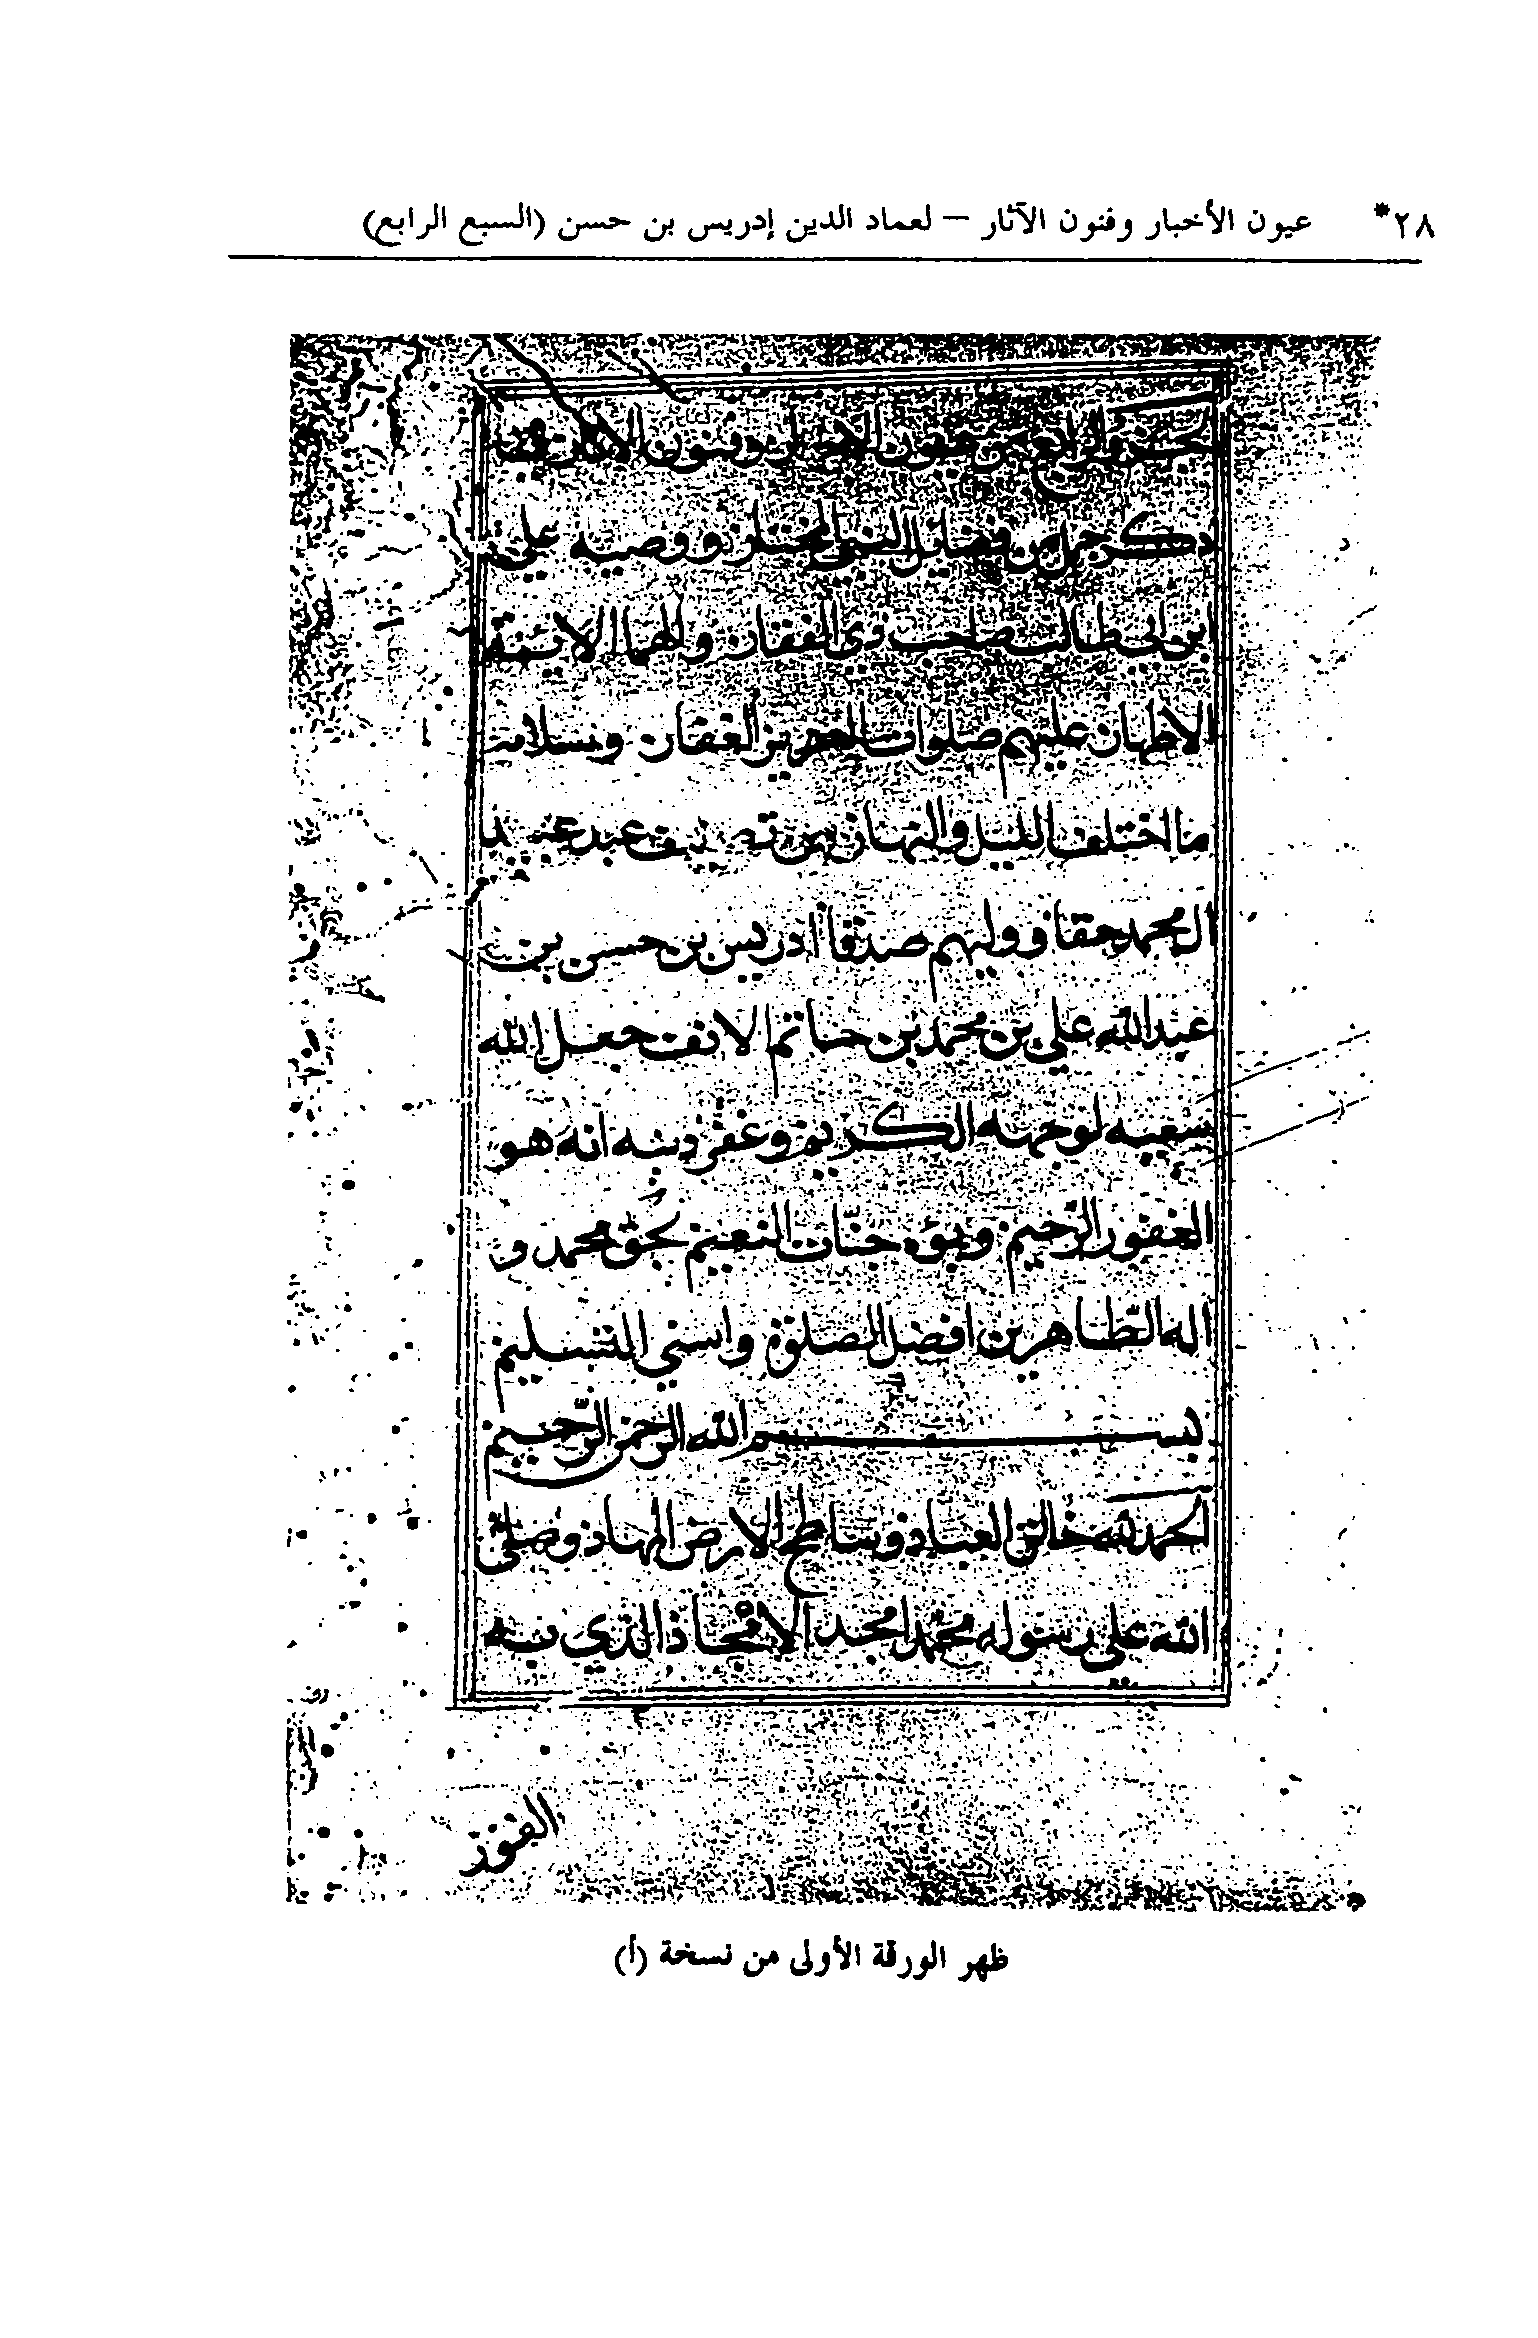 ٢٨* عيون الأخبار وفنون الآثار – لعماد الدين إدريس بن حسن (السبع الرابع)
الجزو الرابع من عيون الاخبار وفنون الاثار في
ذكر جمل من فضايل النبي المختار ووصيه علي
ابن ابي طالب صاحب ذي الفقار والهما الايمة
الاطهار عليهم صلوات العزيز الغفار وسلامه
ما اختلف الليل والنهار تصنيف عبد عبيد
ال محمد حقا ووليهم صدقا ادريس بن حسن بن
عبد الله علي بن محمد بن حاتم الانف جعل الله
سعيه لوجهه الكريم وغفر ذنبه انه هو
الغفور الرحيم وبوه جنات النعيم بحق محمد و
اله الطاهرين افضل الصلوة واسنى التسليم
بسم الله الرحمن الرحيم
الحمد لله خالق العباد وساطح الارض المهاد وصلى
الله على رسوله محمد امجد الامجاد الذي به
الفوز
ظهر الورقة الأولى من نسخة (أ)